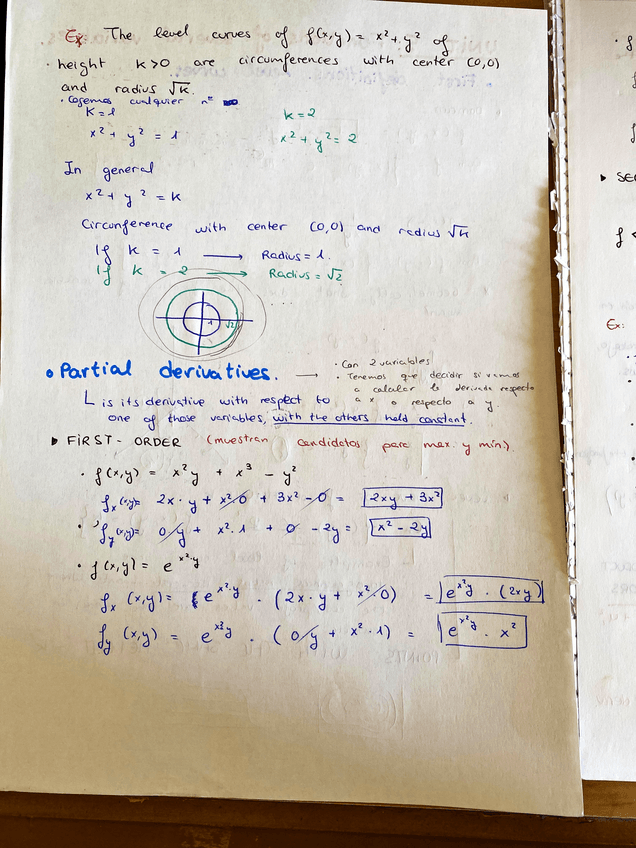 Ex: The level curves of f(x,y) = x² + y² of
· height k>0 are circumferences with center (0,0)
and radius √k.
· Cogemos cualquier nº
k=1 k=2
x² + y² = 1 x² + y² = 2
In general
x² + y² = k
Circunference with center (0,0) and radius √k
If k = 1 → Radius = 1.
If k = 2 → Radius = √2
1 √2 ....
• Partial derivatives. → · Con 2 variables
· Tenemos que decidir si vamos
a calcular la derivada respecto
a x o respecto a y.
L is its derivative with respect to
one of those variables, with the others held constant.
▶ FIRST-ORDER (muestran candidatos para max. y mín.)
· f(x,y) = x²y + x³ - y²
fx (x,y)= 2x·y + x²·0 + 3x² - 0 = 2xy + 3x²
· fy (x,y)= 0·y + x²·1 + 0 - 2y = x² - 2y
· f(x,y) = e^x²·y
fx (x,y) = e^x²·y · (2x·y + x²·0) = e^x²y · (2xy)
fy (x,y) = e^x²y · (0·y + x²·1) = e^x²y · x²
▶ SE
f
Ex: